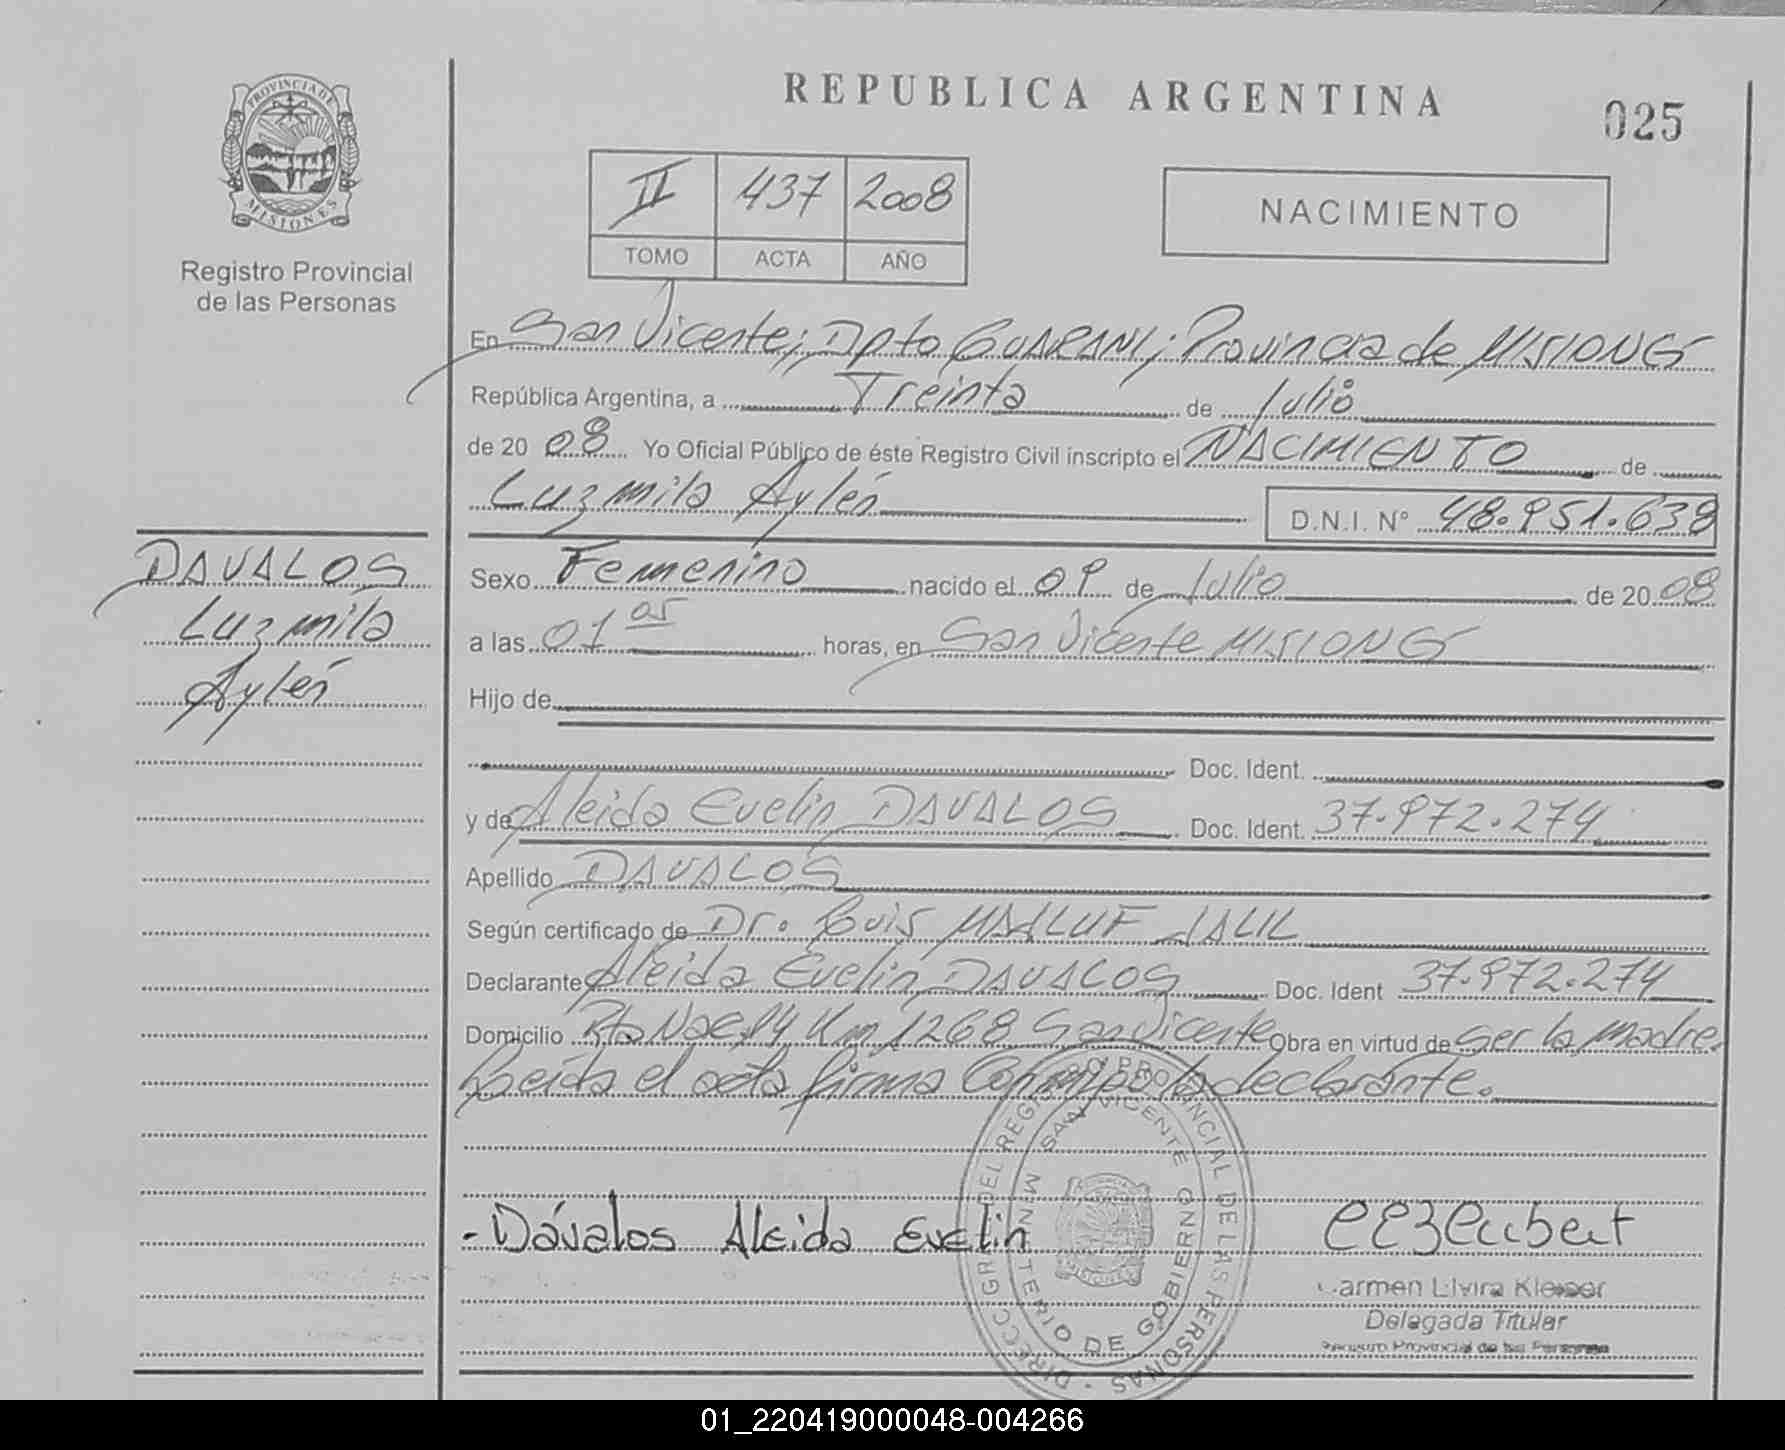 REPUBLICA ARGENTINA
025
PROVINCIA DE
MISIONES
Registro Provincial
de las Personas
II 437 2008
TOMO ACTA AÑO
NACIMIENTO
En San Vicente; Dpto GUARANI; Provincia de MISIONES
República Argentina, a Treinta de Julio
de 20 08 Yo Oficial Público de éste Registro Civil inscripto el NACIMIENTO de
Luzmila Aylén
D.N.I. Nº 48.951.638
DAVALOS
Luzmila
Aylén
Sexo Femenino nacido el 09 de Julio de 20 08
a las 01 horas, en San Vicente MISIONES
Hijo de
Doc. Ident.
y de Aleida Evelin DAVALOS Doc. Ident. 37.972.274
Apellido DAVALOS
Según certificado de Dr. Luis MALLUF JALIL
Declarante Aleida Evelin DAVALOS Doc. Ident 37.972.274
Domicilio Rta Nac 14 Km 1268 San Vicente Obra en virtud de ser la madre.
Leída el acta firma Conmigo la declarante.
- Dávalos Aleida Evelin
Carmen Elvira
Delegada Titular
Registro Provincial de las Personas
DIRECC GRAL DEL REGISTRO PROVINCIAL DE LAS PERSONAS -
SAN VICENTE
MINISTERIO DE GOBIERNO
MISIONES
01_220419000048-004266